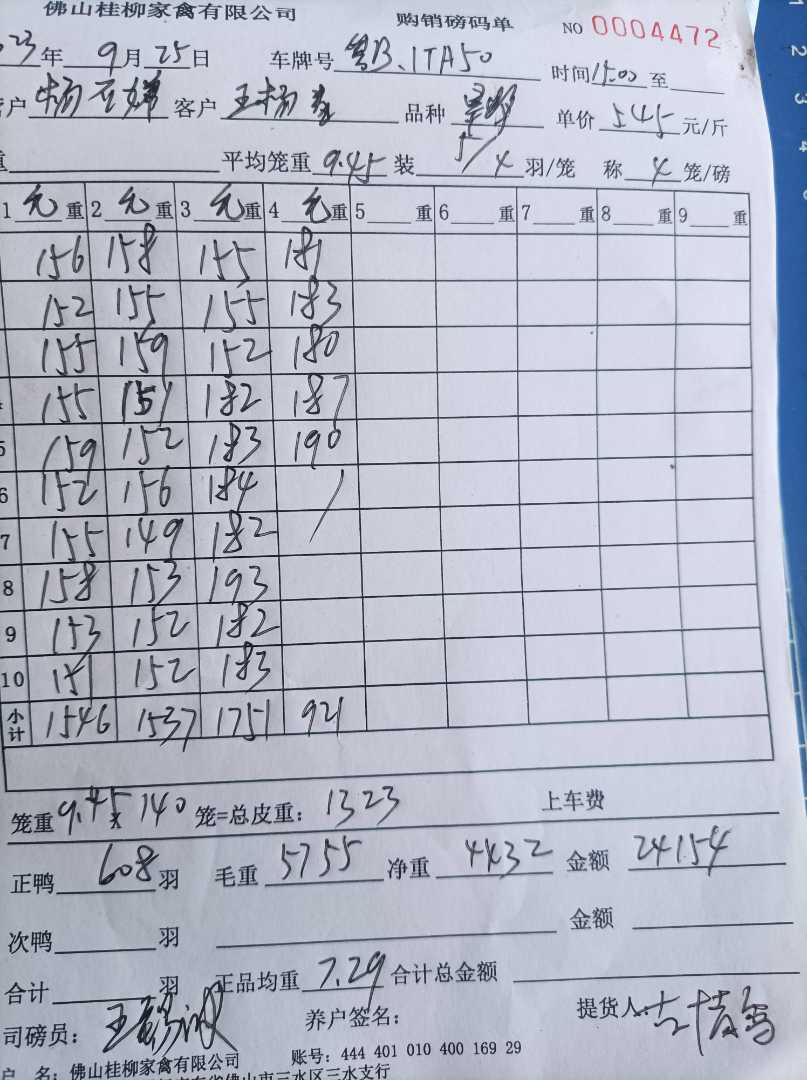 佛山桂柳家禽有限公司 购销磅码单 NO 0004472
23年 9月25日 车牌号 粤B.1TA50 时间15:00至
户 客户 王杨 品种 单价 5.45 元/斤
重 平均笼重 9.45 装 5/4 羽/笼 称 4 笼/磅
1 元 重 2 元 重 3 元 重 4 元 重 5 重 6 重 7 重 8 重 9 重
156 158 155 181
152 155 155 183
155 159 152 180
155 151 182 187
5 159 152 183 190
6 152 156 184 /
7 155 149 182
8 158 153 193
9 153 152 182
10 151 152 183
小计 1546 1537 1751 921
笼重 9.45 x 140 笼=总皮重： 1323 上车费
正鸭 608 羽 毛重 5755 净重 4432 金额 24154
次鸭 羽 金额
合计 羽 正品均重 7.29 合计总金额
司磅员： 王 养户签名： 提货人：
户 名：佛山桂柳家禽有限公司 账号：444 401 010 400 169 29
佛山市三水区三水支行